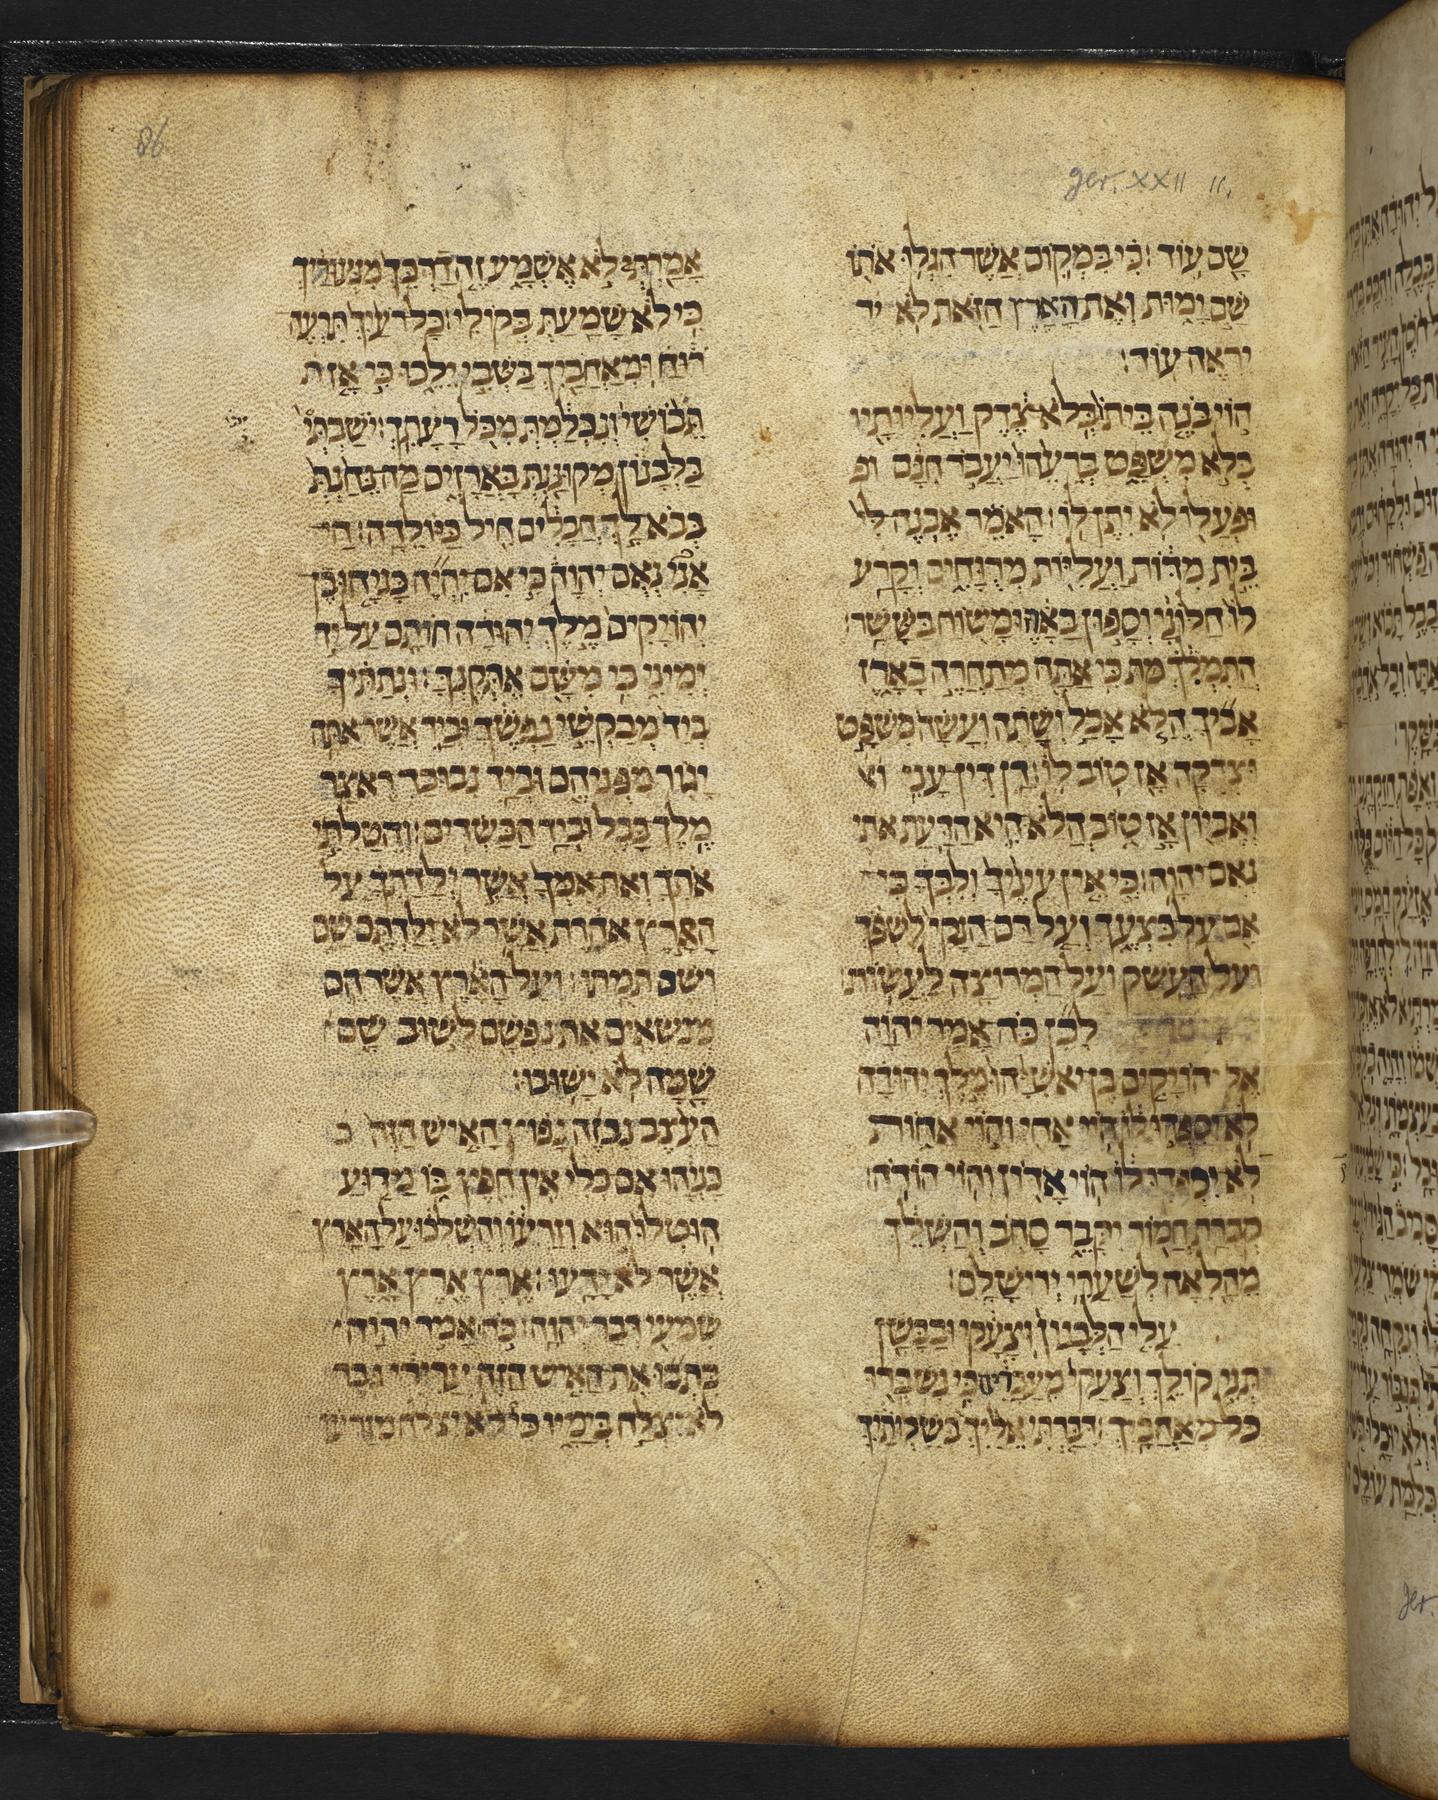 86
ger. XXII 11.
שב עוד׃ כי במקום אשר הגלו אתו
שם ימות ואת הארץ הזאת לא יר
יראה עוד׃
הוי בנה ביתו בלא צדק ועליותיו
בלא משפט ברעהו יעבד חנם ופ
ופעלו לא יתן לו׃ האמר אבנה לי
בית מדות ועליות מרוחים וקרע
לו חלוני וספון בארז ומשוח בששר׃
התמלך כי אתה מתחרה בארז
אביך הלא אכל ושתה ועשה משפט
וצדקה אז טוב לו׃ דן דין עני וא
ואביון אז טוב הלא היא הדעת אתי
נאם יהוה׃ כי אין עיניך ולבך כי
אם על בצעך ועל דם הנקי לשפך
ועל העשק ועל המרוצה לעשות׃
לכן כה אמר יהוה
אל יהויקים בן יאשיהו מלך יהודה
לא יספדו לו הוי אחי והוי אחות
לא יספדו לו הוי אדון והוי הודה׃
קבורת חמור יקבר סחוב והשלך
מהלאה לשערי ירושלם׃
עלי הלבנון וצעקי ובבשן
תני קולך וצעקי מעברים כי נשברו
כל מאהביך׃ דברתי אליך בשלותיך
אמרתי לא אשמע זה דרכך מנעוריך
כי לא שמעת בקולי׃ כל רעיך תרעה
רוח ומאהביך בשבי ילכו כי אז ת
תבושי ונכלמת מכל רעתך׃ ישבתי
בלבנון מקוננת בארזים מה נחנת
בבא לך חבלים חיל כיולדה׃ חי
אני נאם יהוה כי אם יהיה כניהו בן
יהויקים מלך יהודה חותם על יד
ימיני כי משם אתקנך׃ ונתתיך
ביד מבקשי נפשך וביד אשר אתה
יגור מפניהם וביד נבוכדראצר
מלך בבל וביד הכשדים׃ והטלתי
אתך ואת אמך אשר ילדתך על
הארץ אחרת אשר לא ילדתם שם
ושם תמתו׃ ועל הארץ אשר הם
מנשאים את נפשם לשוב שם
שמה לא ישובו׃
העצב נבזה נפוץ האיש הזה כ
כניהו אם כלי אין חפץ בו מדוע
הוטלו הוא וזרעו והשלכו על הארץ
אשר לא ידעו׃ ארץ ארץ ארץ
שמעי דבר יהוה׃ כה אמר יהוה
כתבו את האיש הזה ערירי גבר
לא יצלח בימיו כי לא יצלח מזרעו